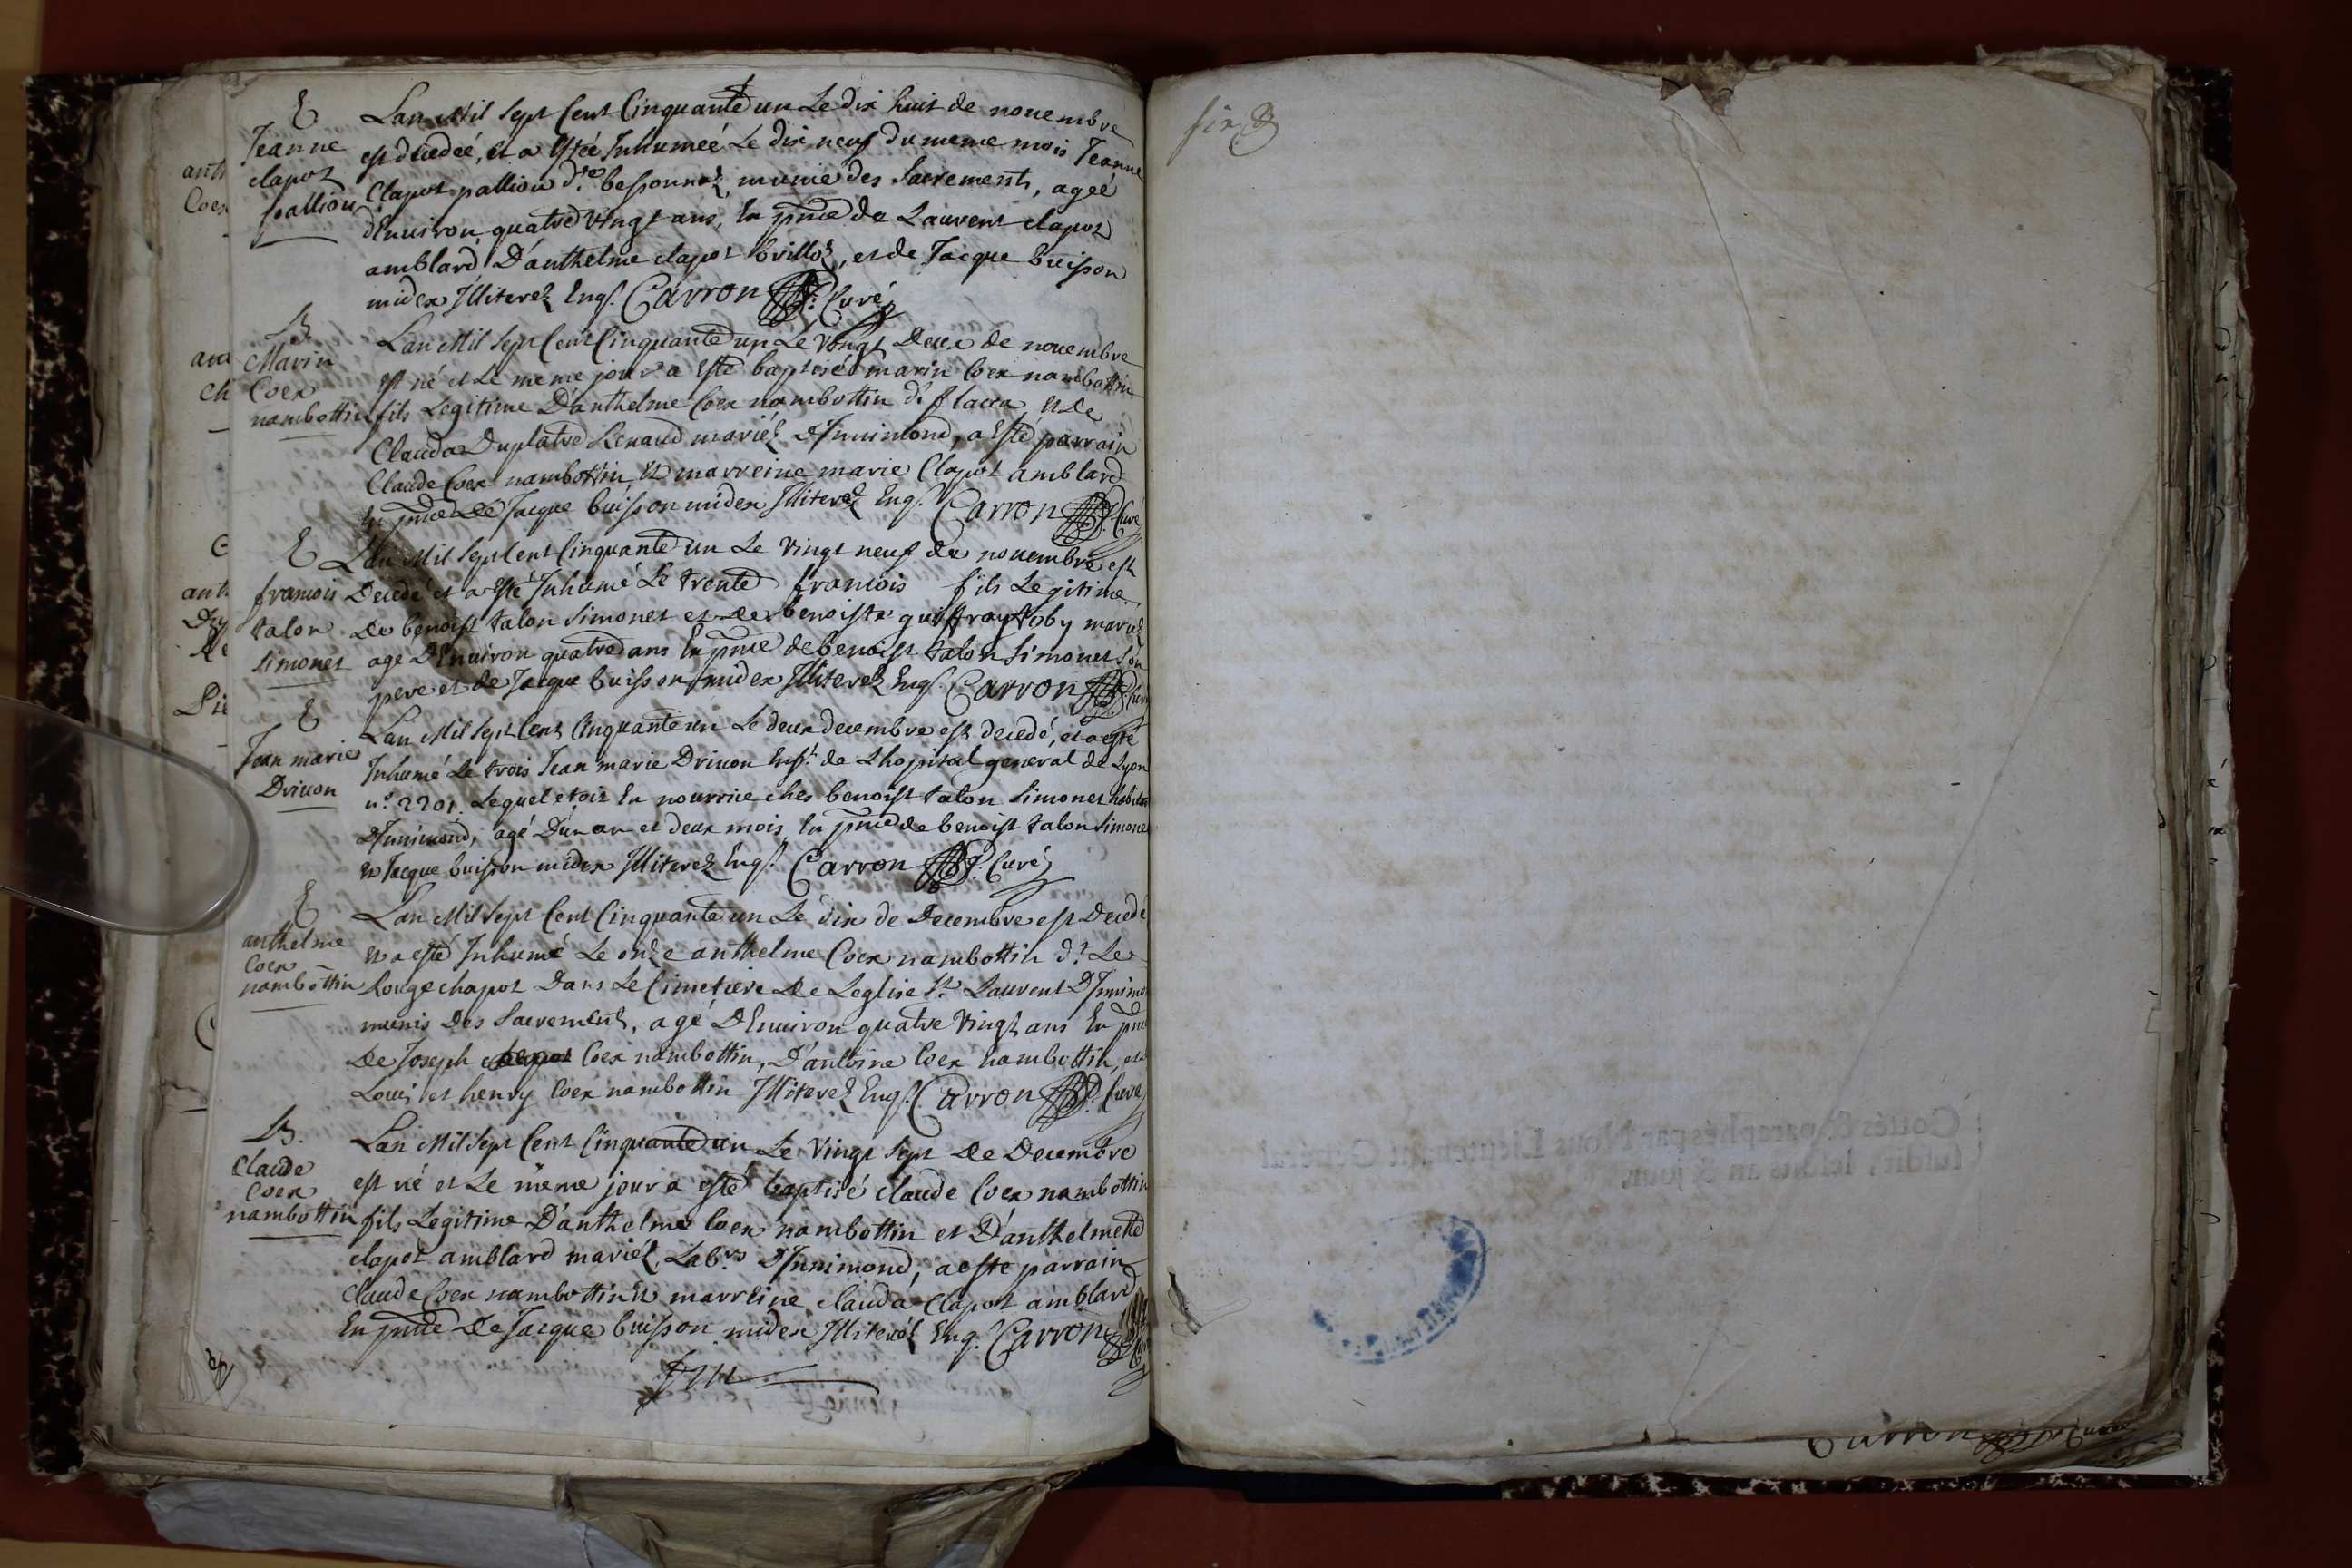 E
Jeanne
clapot
pallion
Lan Mil Sept Cent Cinquante un Le dix huit de nouembre
est decedeé, et a Esteé Inhumeé Le dix neuf du meme mois Jeanne
Clapot pallion d.te bessonnaz, munie des Sacrements, ageé
dEnuiron quatre Vingt ans, En pnce de Laurent clapot
amblard D'anthelme clapot brilloz, et de Jacque buisson
midex Illiterez Engs. Carron Curé
B.
Marin
Coex
nambottin
Lan Mil Sept Cent Cinquante un Le Vingt Deux de nouembre
est né et Le meme jour a Esté baptisé marin Coex nambottin
fils Legitime D'anthelme Coex nambottin d. flacca, et de
Clauda Duplatre Renaud mariéz dInnimond, a Esté parrain
Claude Coex nambottin, et marreine marie Clapot amblard
En pnce de Jacque buisson midex Illiterez Engs. Carron Curé
E
francois
talon
simonet
Lan Mil Sept Cent Cinquante un Le Vingt neuf de nouembre est
Decedé et a Esté Inhumé Le trente francois fils Legitime
De benoist talon simonet et de benoiste guiffray toby mariez
agé DEnuiron quatre ans En pnce de benoist talon simonet son
pere et de Jacque buisson midex Illiterez Engs. Carron Curé
E
Jean marie
Driuon
Lan Mil Sept Cent Cinquante un Le deux decembre est decedé, et a esté
Inhumé Le trois Jean marie Driuon Enft. de Lhopital general de Lyon
n.o 2201. Lequel etoit En nourrice ches benoist talon simonet
dInnimond, agé D'un an et deux mois, En pnce de benoist talon simonet
et Jacque buisson midex Illiterez Engs. Carron Curé
E
anthelme
Coex
nambottin
Lan Mil Sept Cent Cinquante un Le dix de Decembre est Decedé
et a esté Inhumé Le onze anthelme Coex nambottin d.t Le
Rouge chapot Dans Le Cimetiere De Leglise St. Laurent DInnimond
munis Des Sacrements, agé DEnuiron quatre Vingt ans En pnce
De Joseph Coex nambottin, D'antoine Coex nambottin, et
Louis et henry Coex nambottin Illiterez Engs. Carron Curé
B.
Claude
Coex
nambottin
Lan Mil Sept Cent Cinquante un Le Vingt Sept De Decembre
est né et Le même jour a esté baptisé claude Coex nambottin
fils Legitime D'anthelme Coex nambottin et D'anthelmette
clapot amblard mariéz, Lab.rs DInnimond, a esté parrain
Claude Coex nambottin et marreine clauda Clapot amblard
En pnce De Jacque buisson midex Illiteréz Engs. Carron
fin
fin
Cottés & paraphés par Nous Lieutenant General
susdit, lesdits an & jour.
Carron Curé